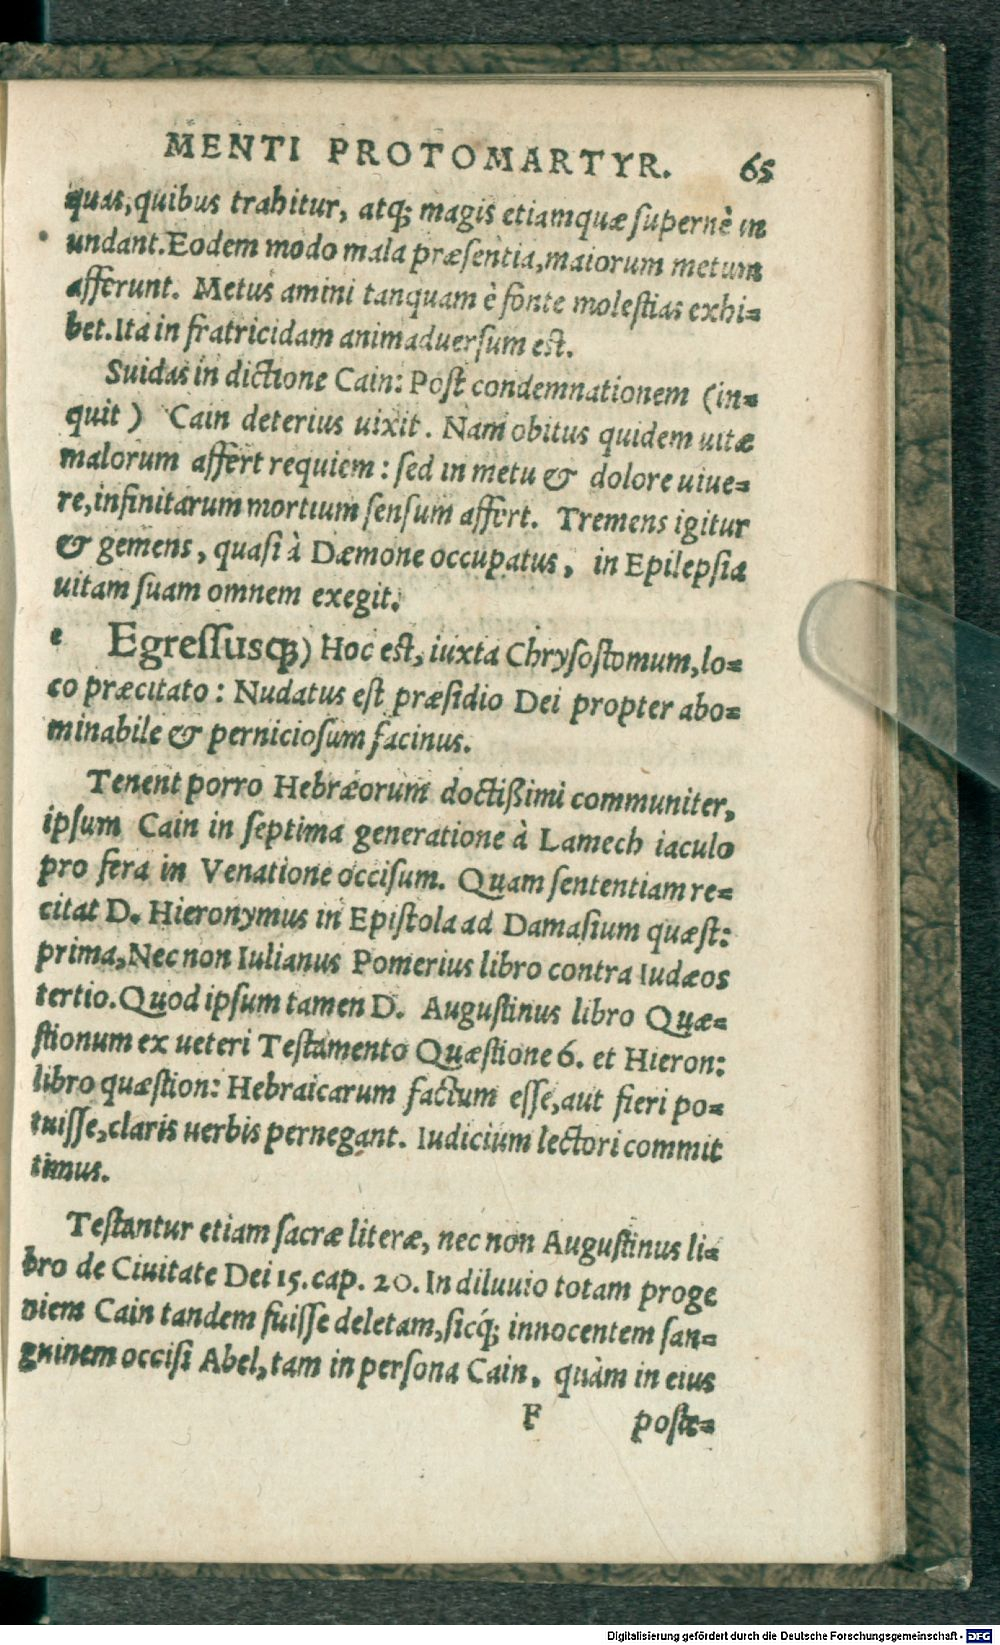 MENTI PROTOMARTYR. 65
quas, quibus trahitur, atq; magis etiamquæ supernè in
undant. Eodem modo mala præsentia, maiorum metum
afferunt. Metus amini tanquam è fonte molestias exhi=
bet. Ita in fratricidam animaduersum est.
Suidas in dictione Cain: Post condemnationem (in=
quit) Cain deterius uixit. Nam obitus quidem uitæ
malorum affert requiem: sed in metu & dolore uiue=
re, infinitarum mortium sensum affert. Tremens igitur
& gemens, quasi à Dæmone occupatus, in Epilepsia
uitam suam omnem exegit.
e Egressusq;) Hoc est, iuxta Chrysostomum, lo=
co præcitato: Nudatus est præsidio Dei propter abo=
minabile & perniciosum facinus.
Tenent porro Hebræorum doctißimi communiter,
ipsum Cain in septima generatione à Lamech iaculo
pro fera in Venatione occisum. Quam sententiam re=
citat D. Hieronymus in Epistola ad Damasium quæst:
prima, Nec non Iulianus Pomerius libro contra Iudæos
tertio. Quod ipsum tamen D. Augustinus libro Quæ=
stionum ex ueteri Testamento Quæstione 6. et Hieron:
libro quæstion: Hebraicarum factum esse, aut fieri po=
tuisse, claris uerbis pernegant. Iudicium lectori commit
timus.
Testantur etiam sacræ literæ, nec non Augustinus li=
bro de Ciuitate Dei 15. cap. 20. In diluuio totam proge
niem Cain tandem fuisse deletam, sicq́; innocentem san=
guinem occisi Abel, tam in persona Cain, quàm in eius
F poste=
Digitalisierung gefördert durch die Deutsche Forschungsgemeinschaft - DFG